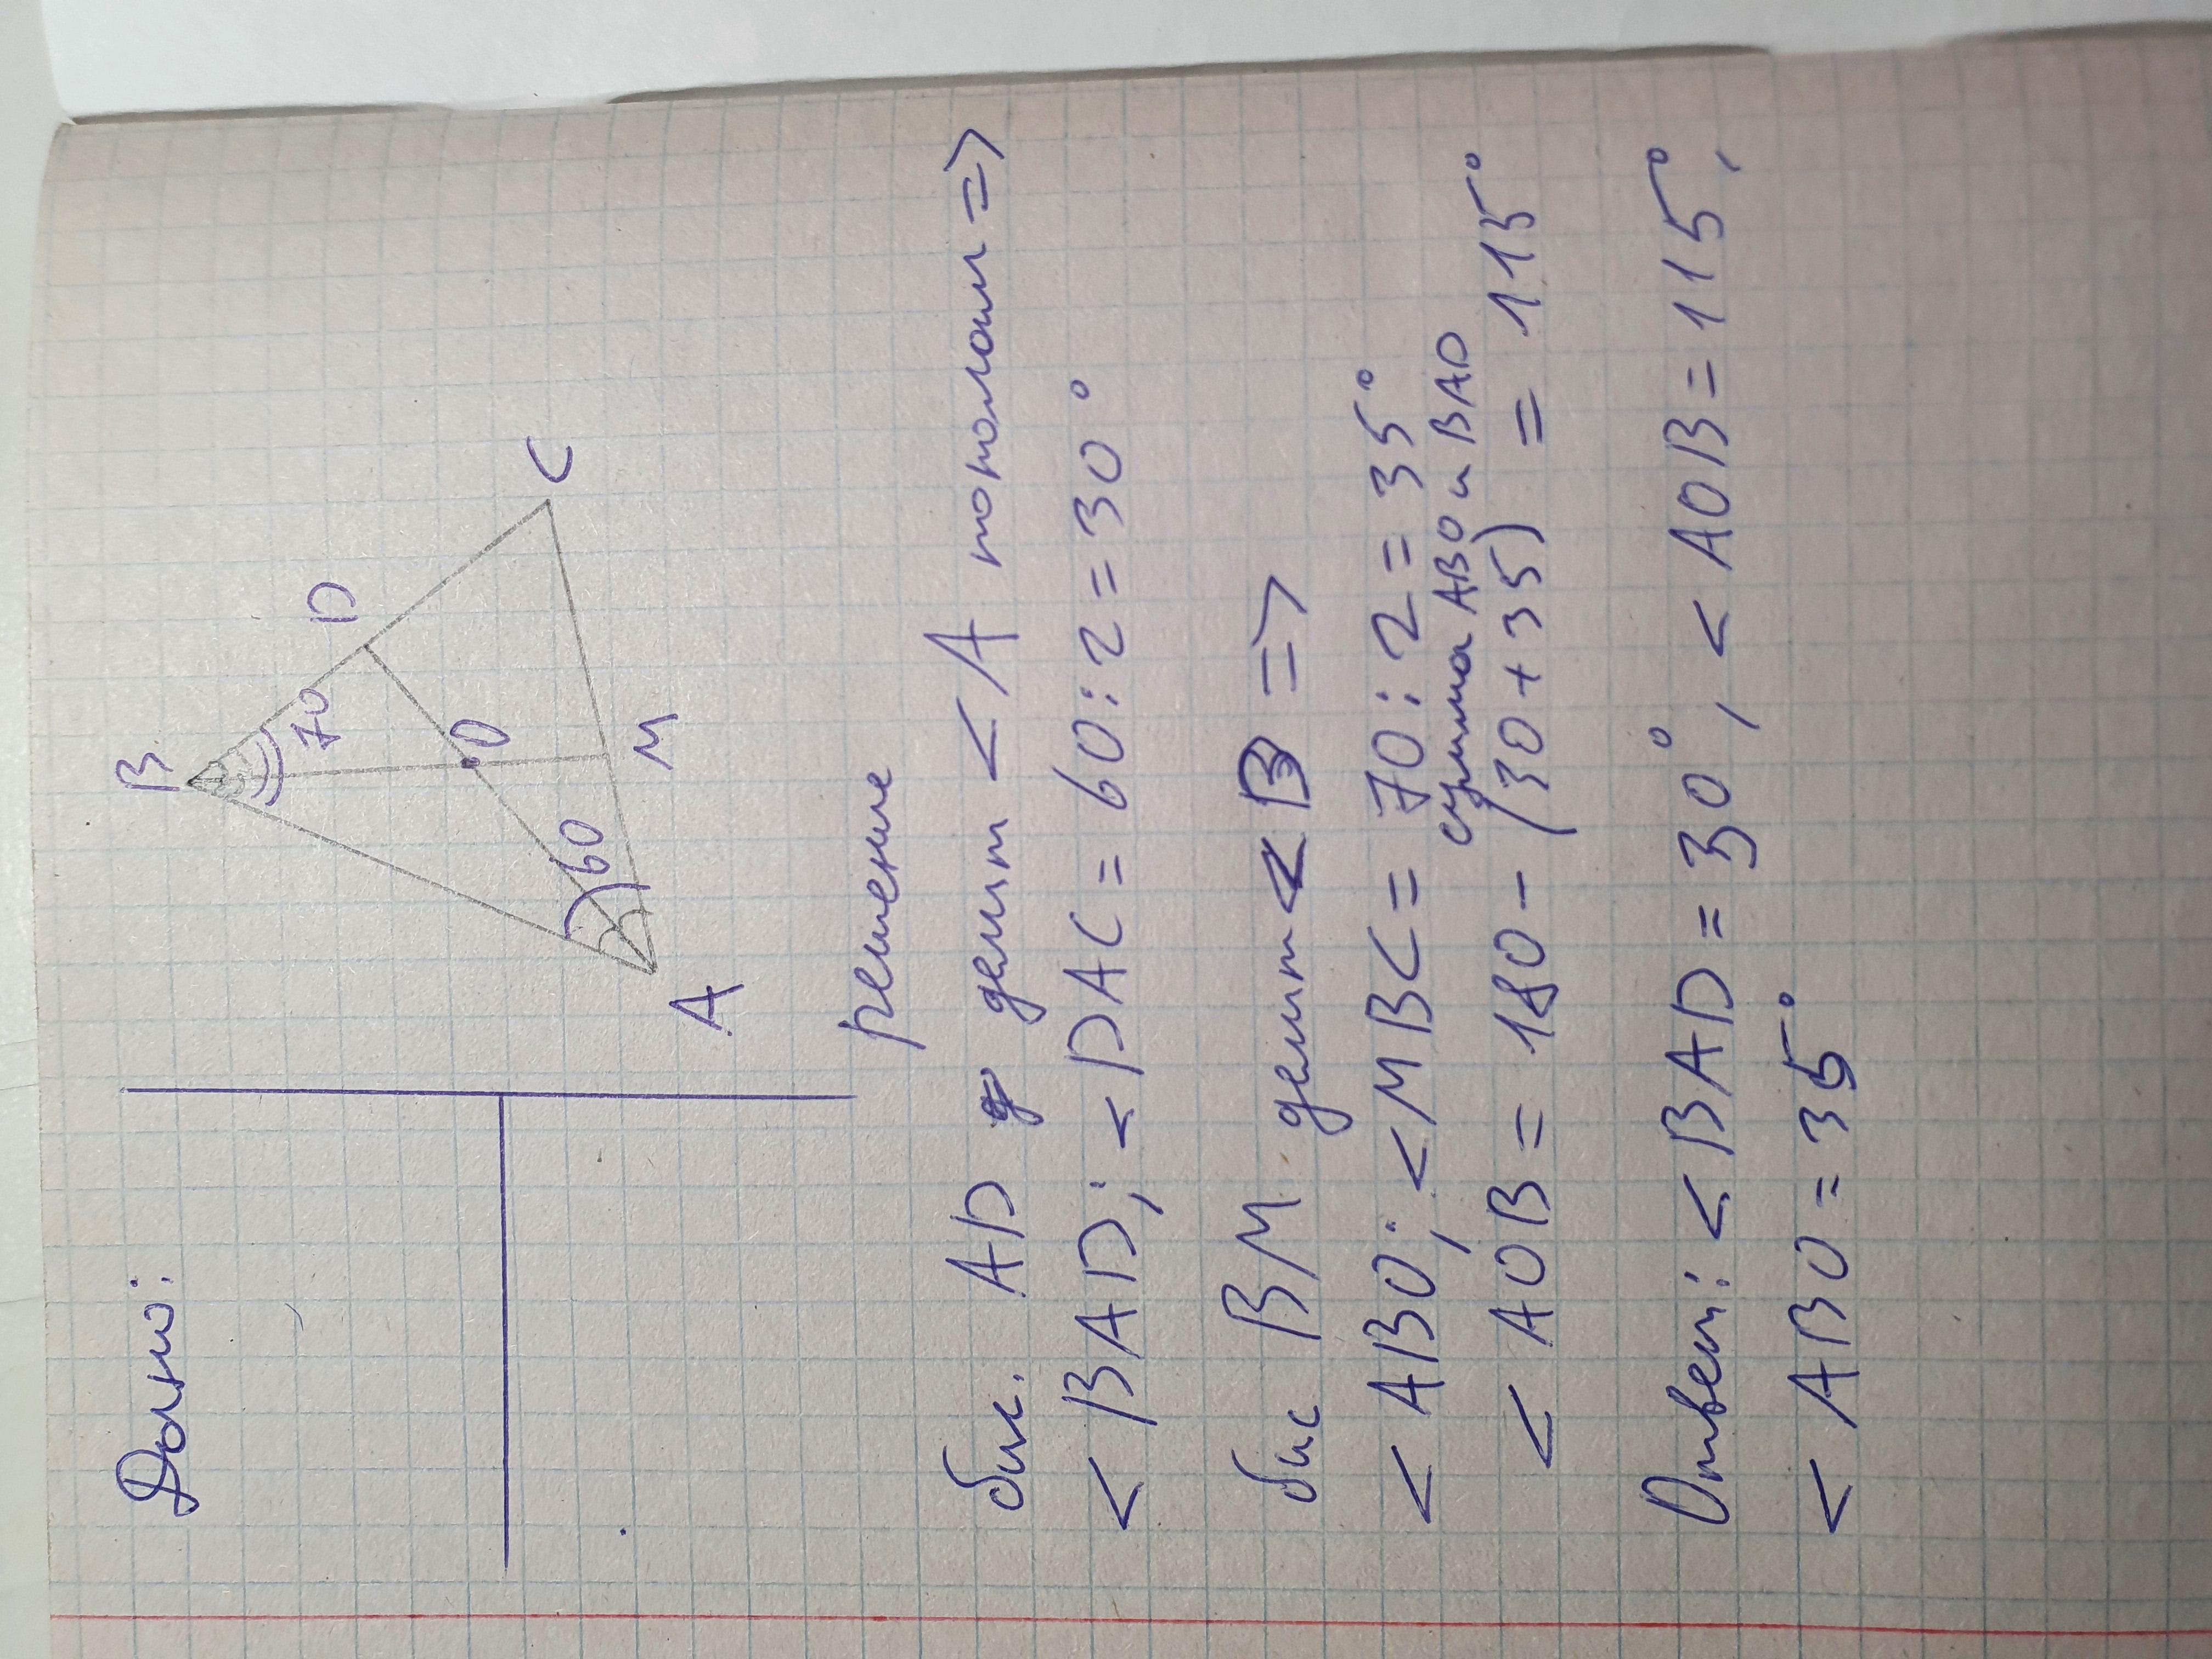 Дано:
B
70
D
O
60
A
M
C
решение
бис. AD делит < A пополам =>
< BAD; < DAC = 60 : 2 = 30°
бис BM делит < B =>
< ABO; < MBC = 70 : 2 = 35°
сумма ABO и BAD
< AOB = 180 - (30 + 35) = 115°
Ответ: < BAD = 30°, < AOB = 115°,
< ABO = 35°